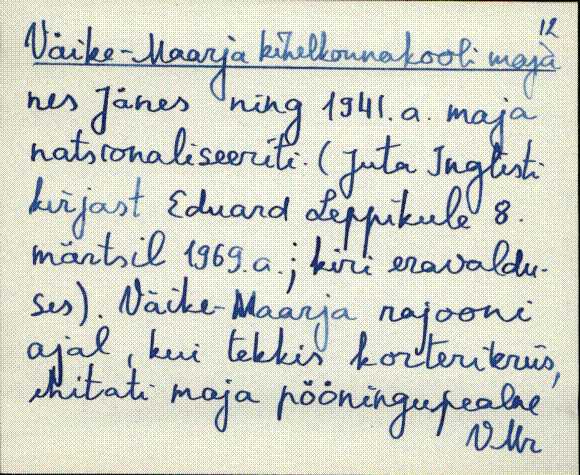 12
Väike-Maarja kihelkonnakooli maja
nes Jänes ning 1941.a. maja
natsionaliseeriti. (Juta Inglisti
kirjast Eduard Leppikule 8.
märtsil 1969.a.; kiri eravaldu-
ses). Väike-Maarja rajooni
ajal, kui tekkis korterikriis,
ehitati maja pööningupealne
VMr